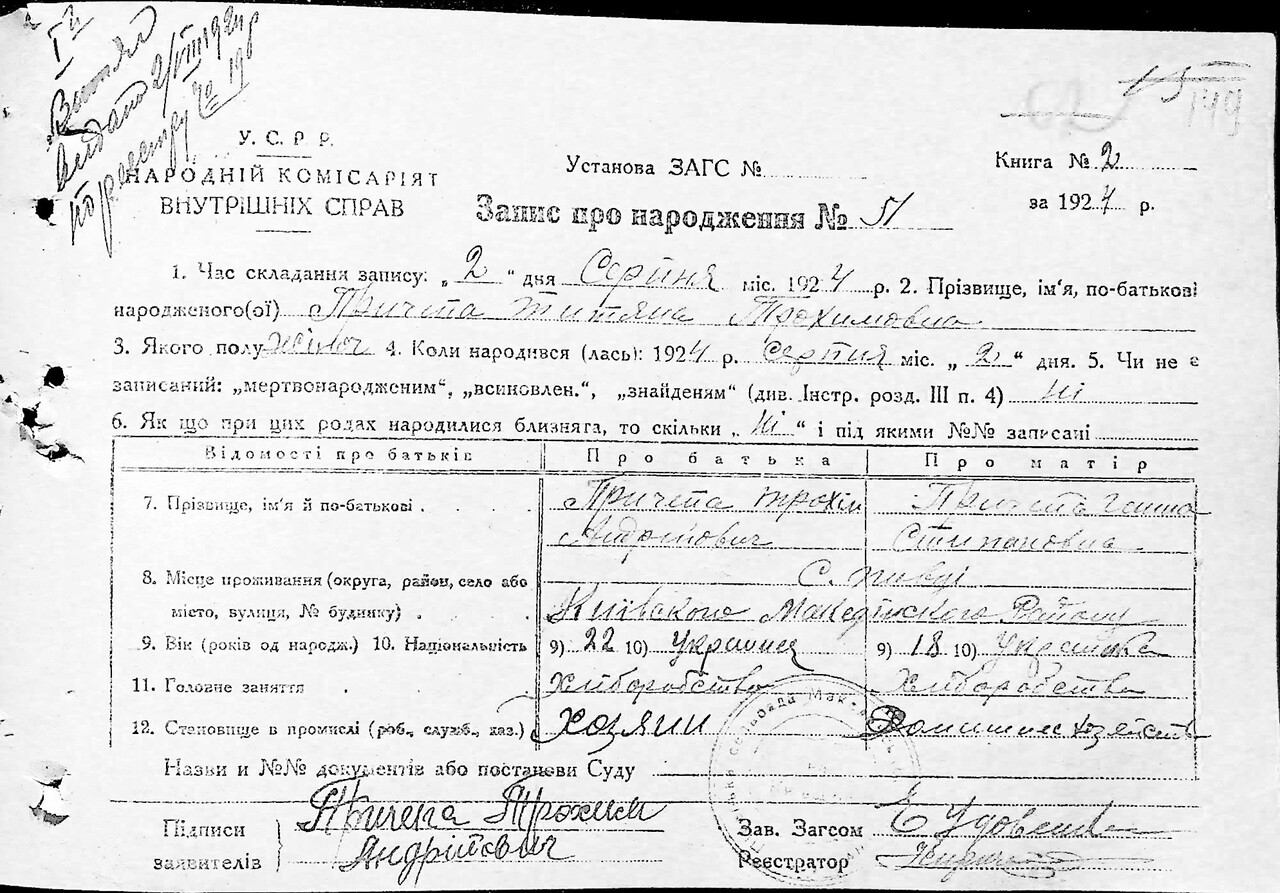 Витяг
видано 2/VIII 1924 р
по реєстру № 196
149
У. С. Р. Р.
НАРОДНІЙ КОМІСАРІЯТ
ВНУТРІШНІХ СПРАВ
Установа ЗАГС №
Книга № 2
за 1924 р.
Запис про народження № 51
1. Час складання запису: „ 2 “ дня Серпня міс. 1924 р. 2. Прізвище, ім'я, по-батькові
народженого(ої) Причепа Титяна Трохимовна
3. Якого полу жіноч 4. Коли народився (лась): 1924 р. Серпня міс. „ 2 “ дня. 5. Чи не є
записаний: „мертвонародженим“, „всиновлен.“, „знайденям“ (див. Інстр. розд. III п. 4) Ні
6. Як що при цих родах народилися близняга, то скільки „ Ні “ і під якими №№ записані
Відомості про батьків Про батька Про матір
7. Прізвище, ім'я й по-батькові Причепа Трохим Причепа Ганна
Андрійович Степановна
8. Місце проживання (округа, район, село або С. Пивці
місто, вулиця, № будинку) Київского Македонского Району
9. Вік (років од народж.) 10. Національність 9) 22 10) Украинец 9) 18 10) Украинка
11. Головне заняття Хлиборобство Хлиборобство
12. Становище в промислі (роб., служб., хаз.) Хозяин Домишнее хозяйство
Назви и №№ документів або постанови Суду
Підписи
заявителів
Причепа Трохим
Андрійович
Зав. Загсом Удовенко
Реєстратор